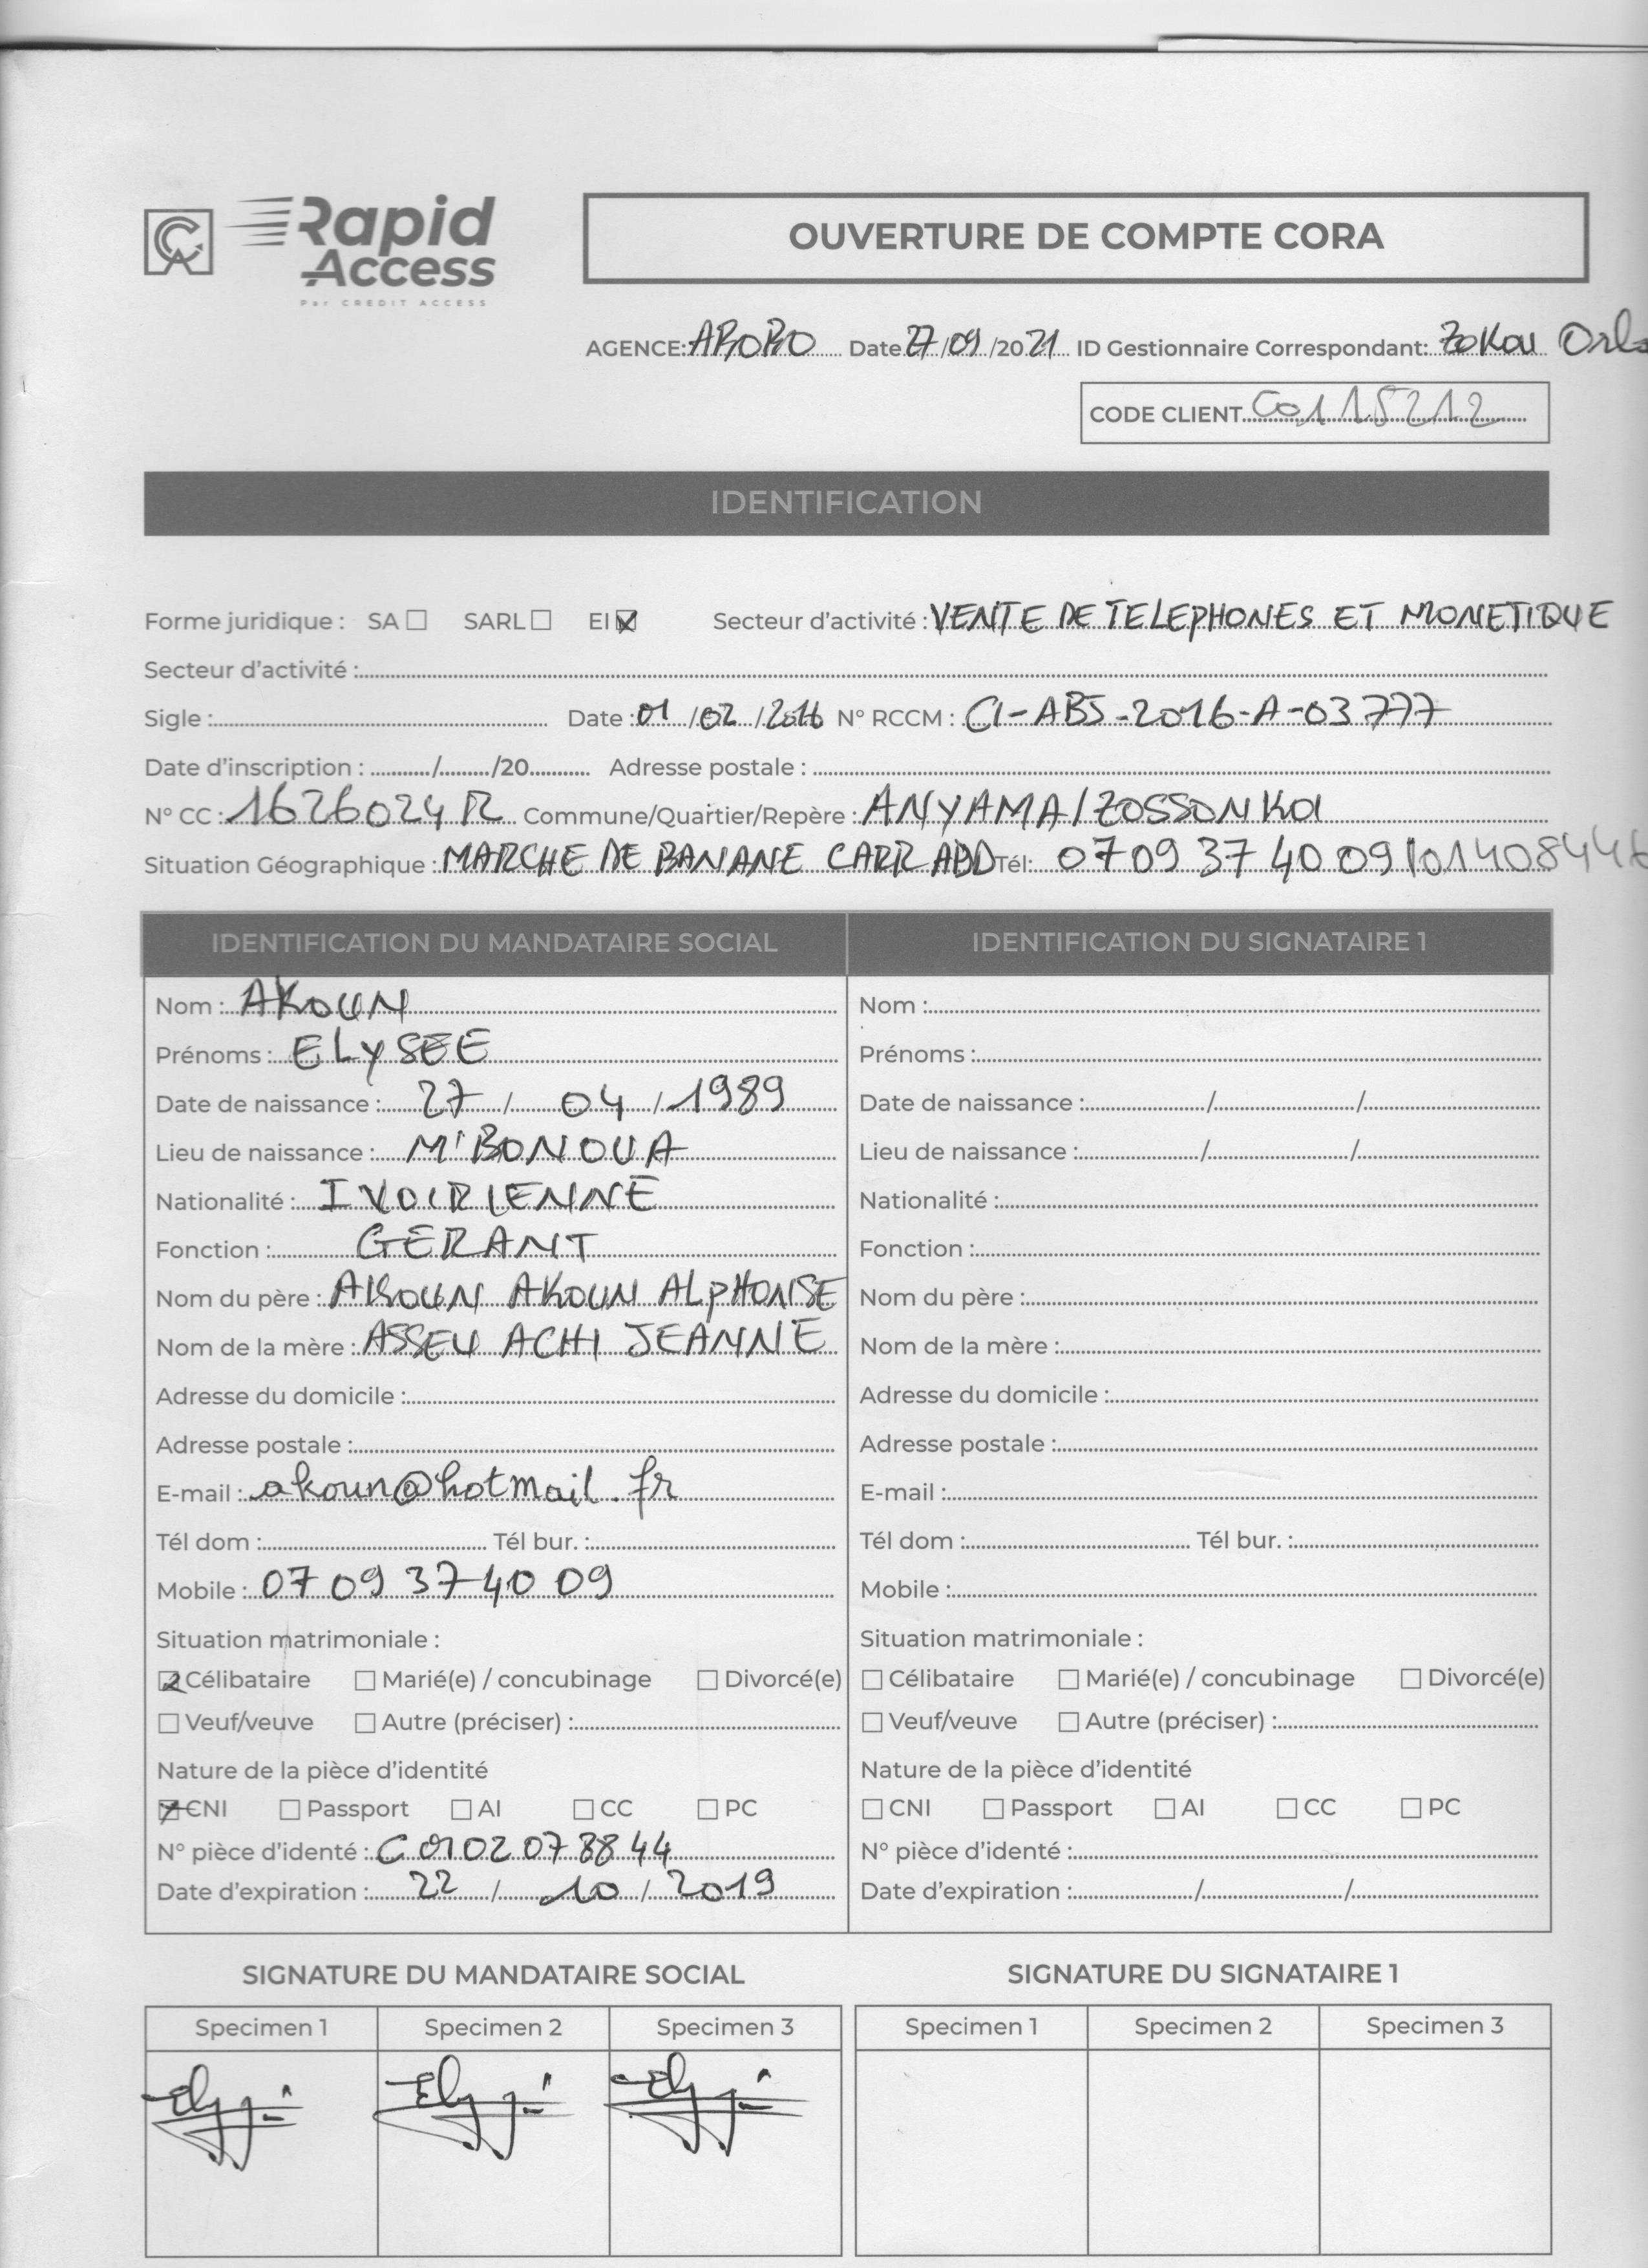 Rapid
Access
Par CREDIT ACCESS
OUVERTURE DE COMPTE CORA
AGENCE: ABOBO Date 27/09/2021 ID Gestionnaire Correspondant: Zokou
CODE CLIENT C0115212
IDENTIFICATION
Forme juridique : SA ☐ SARL ☐ EI ☒ Secteur d'activité : VENTE DE TELEPHONES ET MONETIQUE
Secteur d'activité :
Sigle : Date : 01/02/2016 N° RCCM : CI-ABJ-2016-A-03777
Date d'inscription : / /20 Adresse postale :
N° CC : 1626024 R Commune/Quartier/Repère : ANYAMA/ZOSSONKOI
Situation Géographique : MARCHE DE BANANE CARR ABD Tél: 07 09 37 40 09/01408446
IDENTIFICATION DU MANDATAIRE SOCIAL
Nom : AKOUN
Prénoms : ELYSEE
Date de naissance : 27 / 04 / 1989
Lieu de naissance : M'BONOUA
Nationalité : IVOIRIENNE
Fonction : GERANT
Nom du père : AKOUN AKOUN ALPHONSE
Nom de la mère : ASSEU ACHI JEANNE
Adresse du domicile :
Adresse postale :
E-mail : akoun@hotmail.fr
Tél dom : Tél bur. :
Mobile : 07 09 37 40 09
Situation matrimoniale :
☒ Célibataire ☐ Marié(e) / concubinage ☐ Divorcé(e)
☐ Veuf/veuve ☐ Autre (préciser) :
Nature de la pièce d'identité
☒ CNI ☐ Passport ☐ AI ☐ CC ☐ PC
N° pièce d'identé : C 0102 07 88 44
Date d'expiration : 22 / 10 / 2019
IDENTIFICATION DU SIGNATAIRE 1
Nom :
Prénoms :
Date de naissance : / /
Lieu de naissance : / /
Nationalité :
Fonction :
Nom du père :
Nom de la mère :
Adresse du domicile :
Adresse postale :
E-mail :
Tél dom : Tél bur. :
Mobile :
Situation matrimoniale :
☐ Célibataire ☐ Marié(e) / concubinage ☐ Divorcé(e)
☐ Veuf/veuve ☐ Autre (préciser) :
Nature de la pièce d'identité
☐ CNI ☐ Passport ☐ AI ☐ CC ☐ PC
N° pièce d'identé :
Date d'expiration : / /
SIGNATURE DU MANDATAIRE SOCIAL
Specimen 1 Specimen 2 Specimen 3
SIGNATURE DU SIGNATAIRE 1
Specimen 1 Specimen 2 Specimen 3